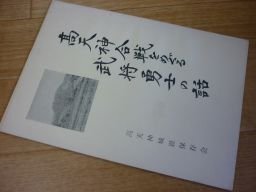 高天神合戦をめぐる
武将勇士の話
高天神城址保存会